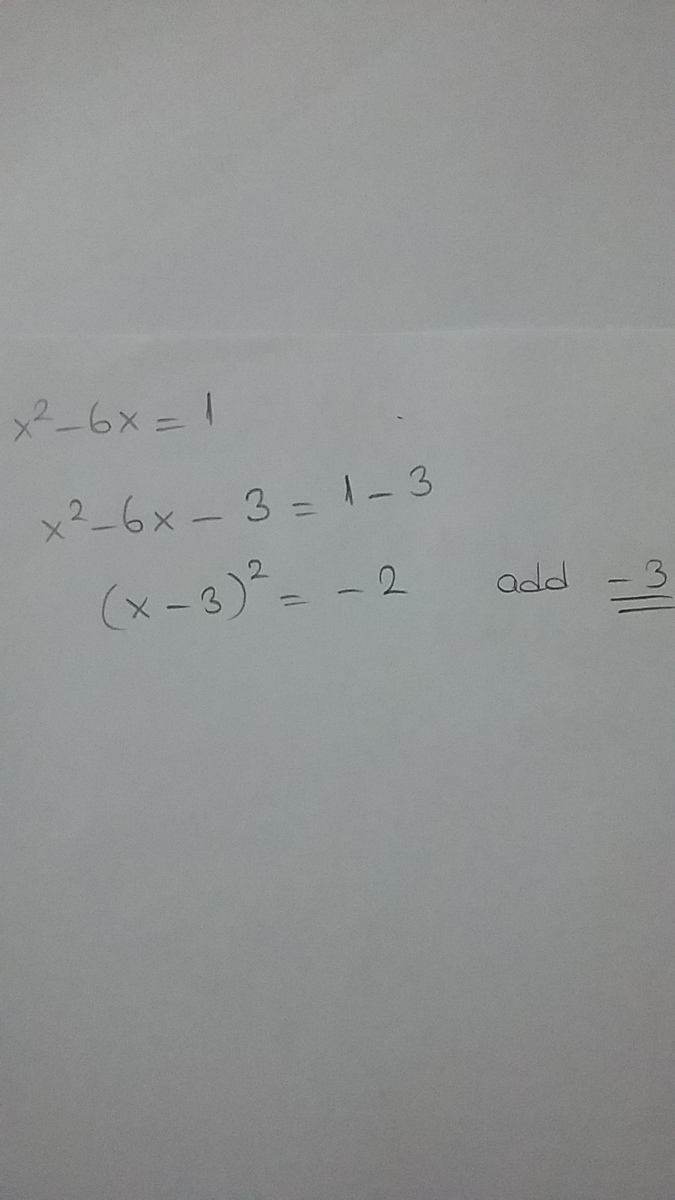 x² - 6x = 1
x² - 6x - 3 = 1 - 3
(x - 3)² = - 2 add - 3